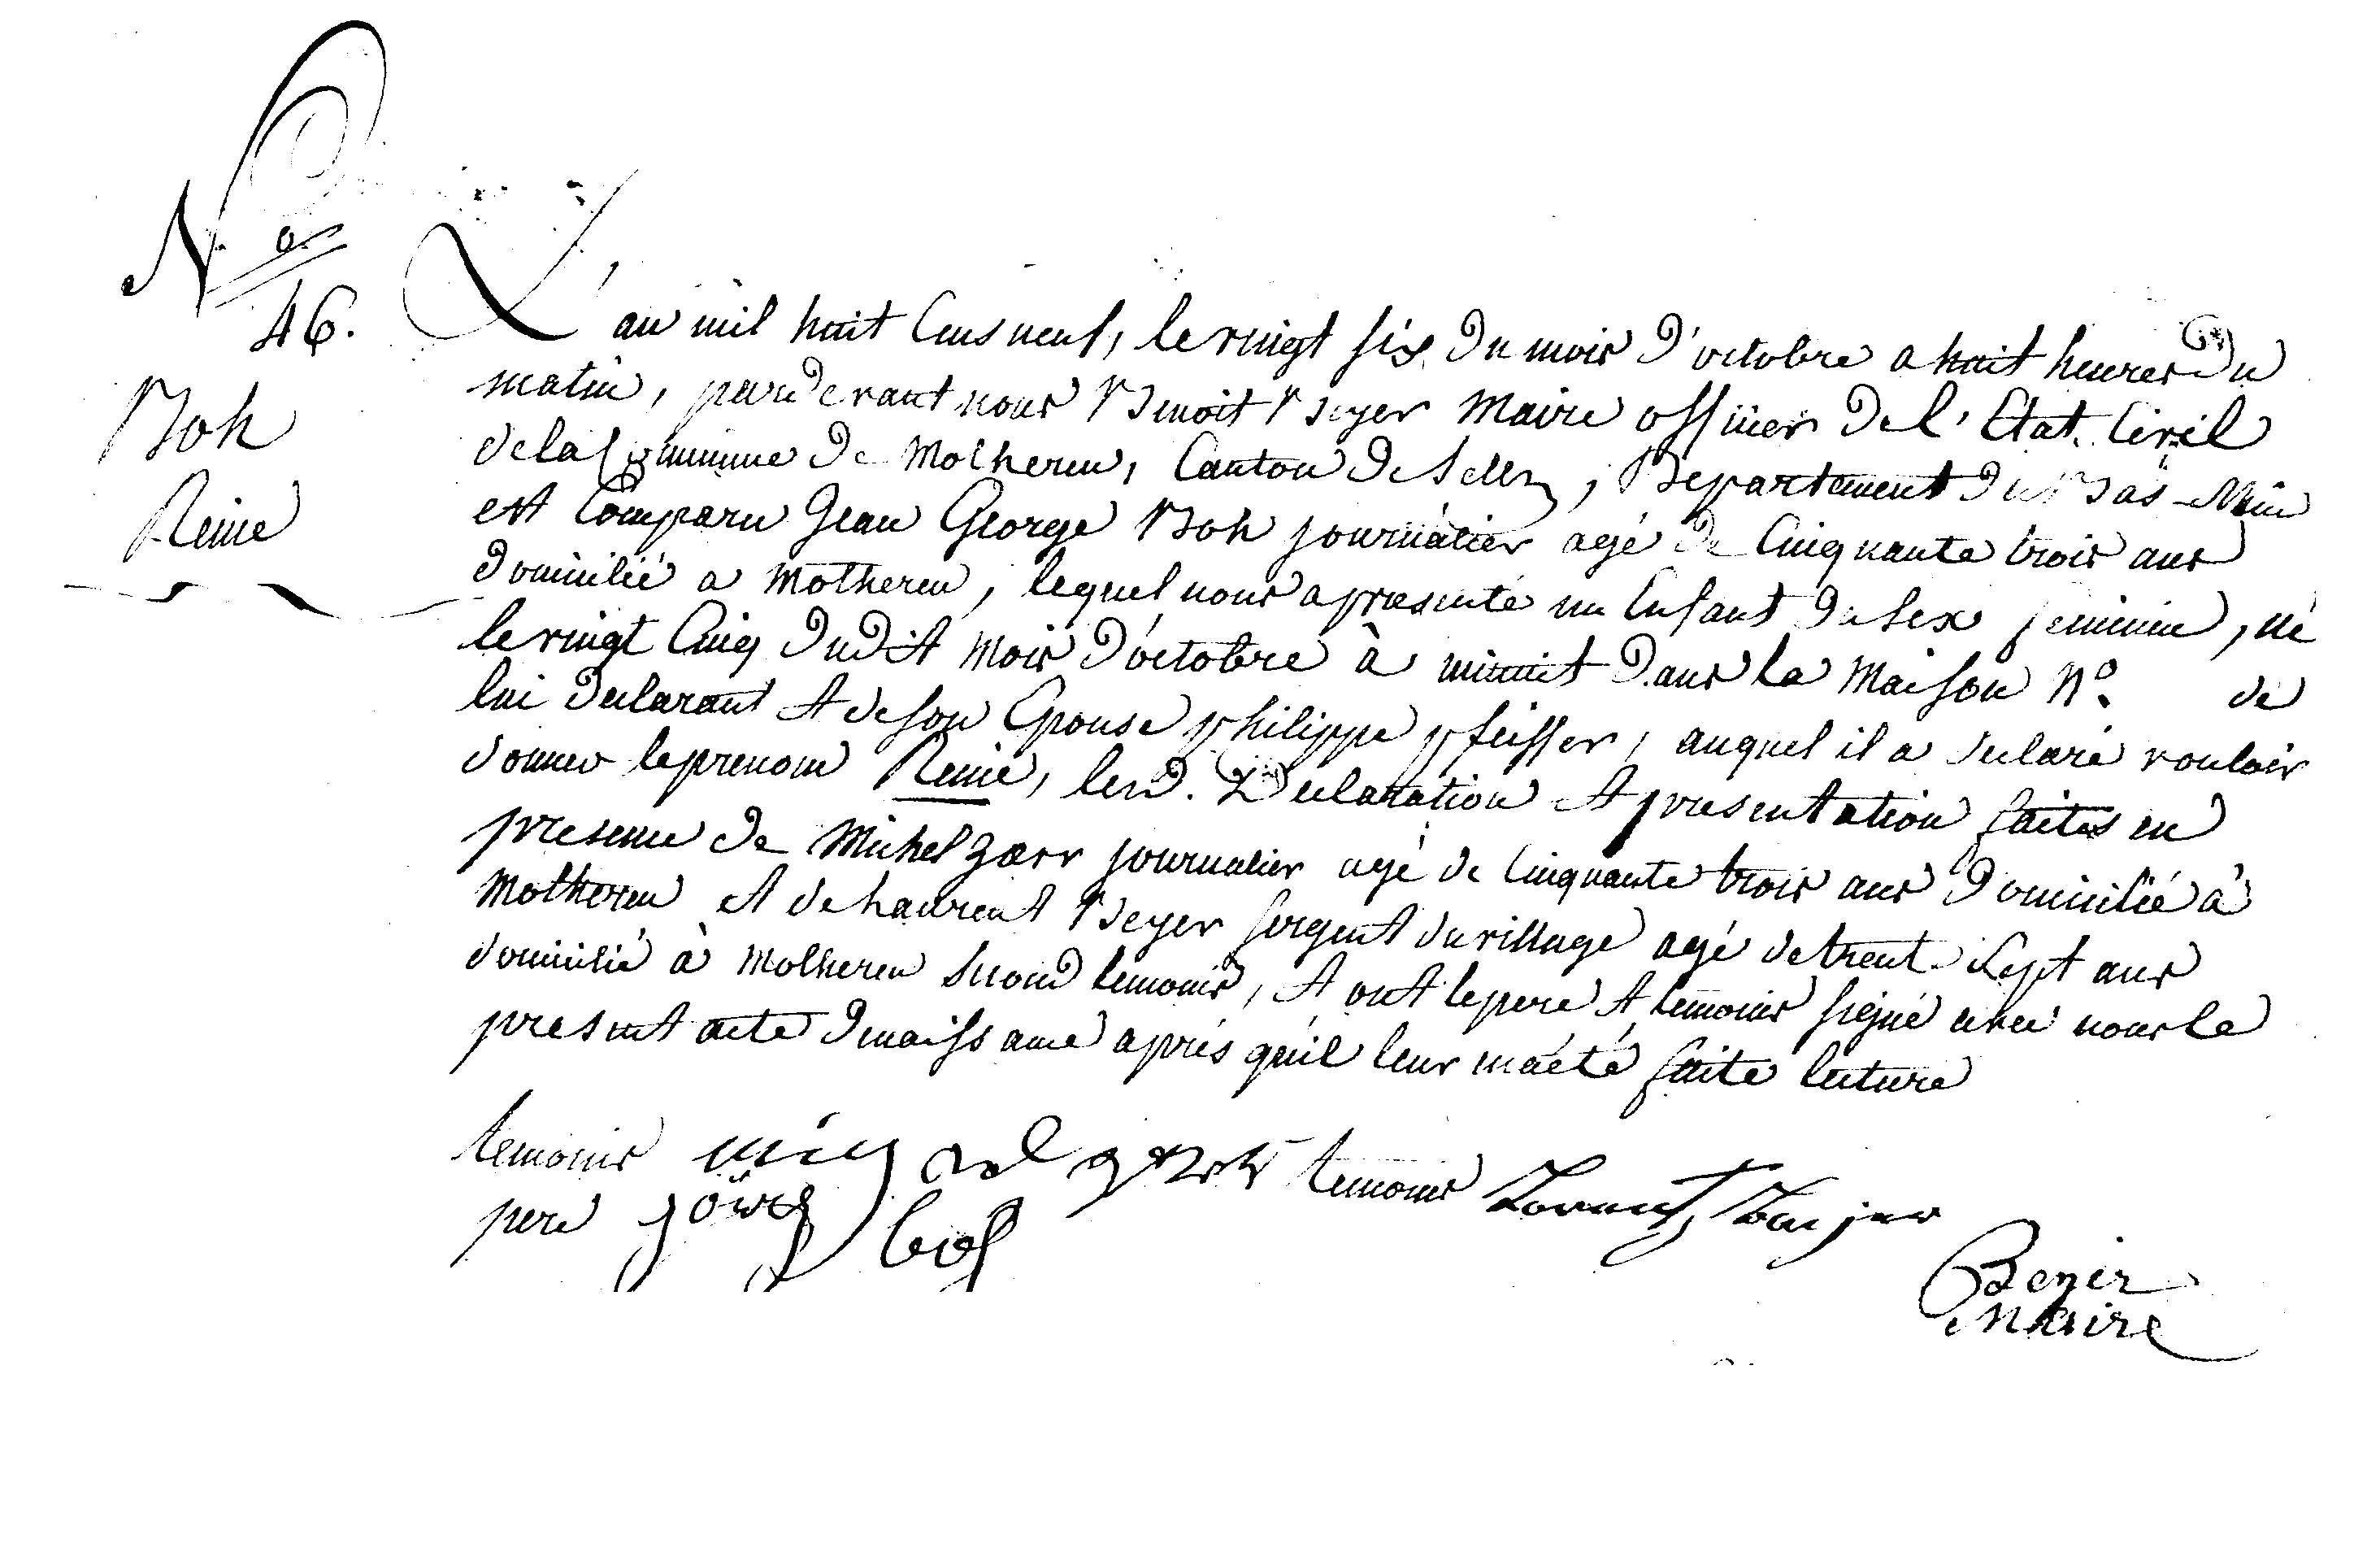 N.o
46.
Boh
Reine
L'an mil huit Cens neuf, le vingt six du mois d'octobre a huit heures du
matin, pardevant nous Benoit Beyer Maire officier de l'Etat Civil
de la Commune de Motheren, Canton de Selz, Departement du Bas-Rhin
est Comparu Jean George Boh journalier agé de Cinquante trois ans
domicilié a Motheren, lequel nous a presenté un Enfant du sex feminin, né
le vingt Cinq dudit mois d'octobre à minuit dans la Maison N.o de
lui declarant et de son Epouse philippe pfeiffer, auquel il a declaré vouloir
donner le prenom Reine, lesd. Declaration et presentation faites en
presence de Michel Zoerr journalier agé de Cinquante trois ans domicilié à
Motheren et de Laurent Beyer sergent du village agé de trente Sept ans
domicilié à Motheren second temoins, et ont le pere et temoins signé avec nous le
present acte de naissance après qu'il leur en a été faite lecture
temoins Michel temoins Lorentz
pere Jörg boh
Beyer
Maire